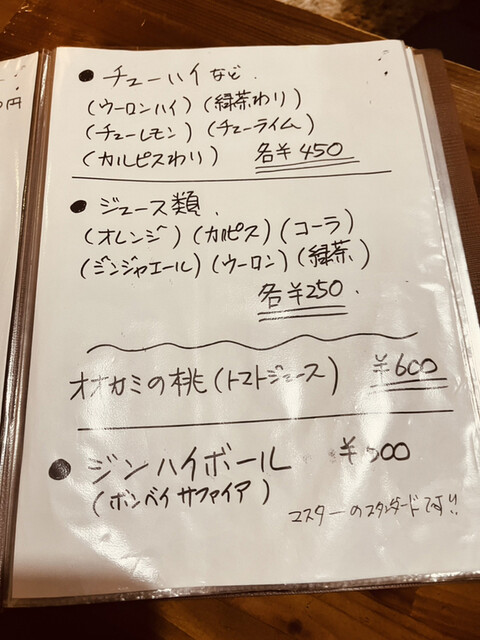 ● チューハイなど.
(ウーロンハイ) (緑茶わり)
(チューレモン) (チューライム)
(カルピスわり) 各¥450
● ジュース類.
(オレンジ) (カルピス) (コーラ)
(ジンジャエール) (ウーロン) (緑茶)
各¥250.
オオカミの桃(トマトジュース) ¥600
● ジンハイボール ¥500
(ボンベイサファイア)
マスターのスタンダードです!!
円